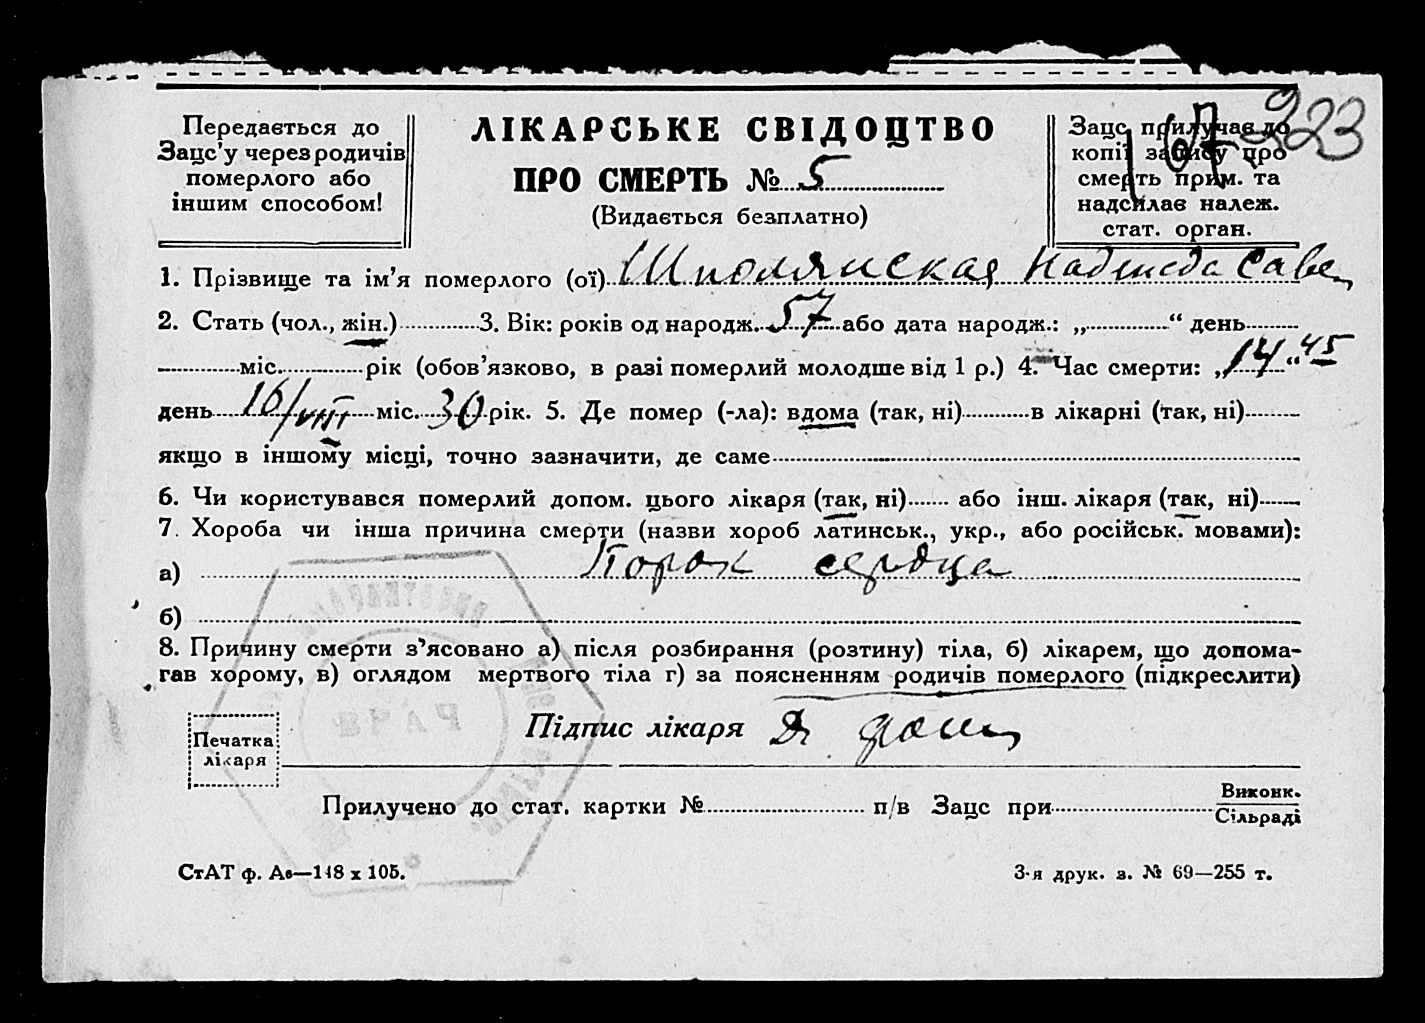 Передається до
Зацс'у через родичів
померлого або
іншим способом!
ЛІКАРСЬКЕ СВІДОЦТВО
ПРО СМЕРТЬ № 5
(Видається безплатно)
Зацс прилучає до
копії запису про
смерть прим. та
надсилає належ.
стат. орган.
167
223
1. Прізвище та ім'я померлого (ої) Шполянская Надежда Саве
2. Стать (чол., жін.) 3. Вік: років од народж. 57 або дата народж.: „ “ день
міс. рік (обов'язково, в разі померлий молодше від 1 р.) 4. Час смерти: „14“ 45
день 16/VIII міс. 30 рік. 5. Де помер (-ла): вдома (так, ні) в лікарні (так, ні)
якщо в іншому місці, точно зазначити, де саме
6. Чи користувався померлий допом. цього лікаря (так, ні) або інш. лікаря (так, ні)
7. Хороба чи інша причина смерти (назви хороб латинськ., укр., або російськ. мовами):
а) Порок сердца
б)
8. Причину смерти з'ясовано а) після розбирання (розтину) тіла, б) лікарем, що допома-
гав хорому, в) оглядом мертвого тіла г) за поясненням родичів померлого (підкреслити)
Підпис лікаря
Печатка
лікаря
Прилучено до стат. картки № п/в Зацс при Виконк.
Сільраді
СтАТ ф. Ав—148 х 105.
3-я друк. з. № 69—255 т.